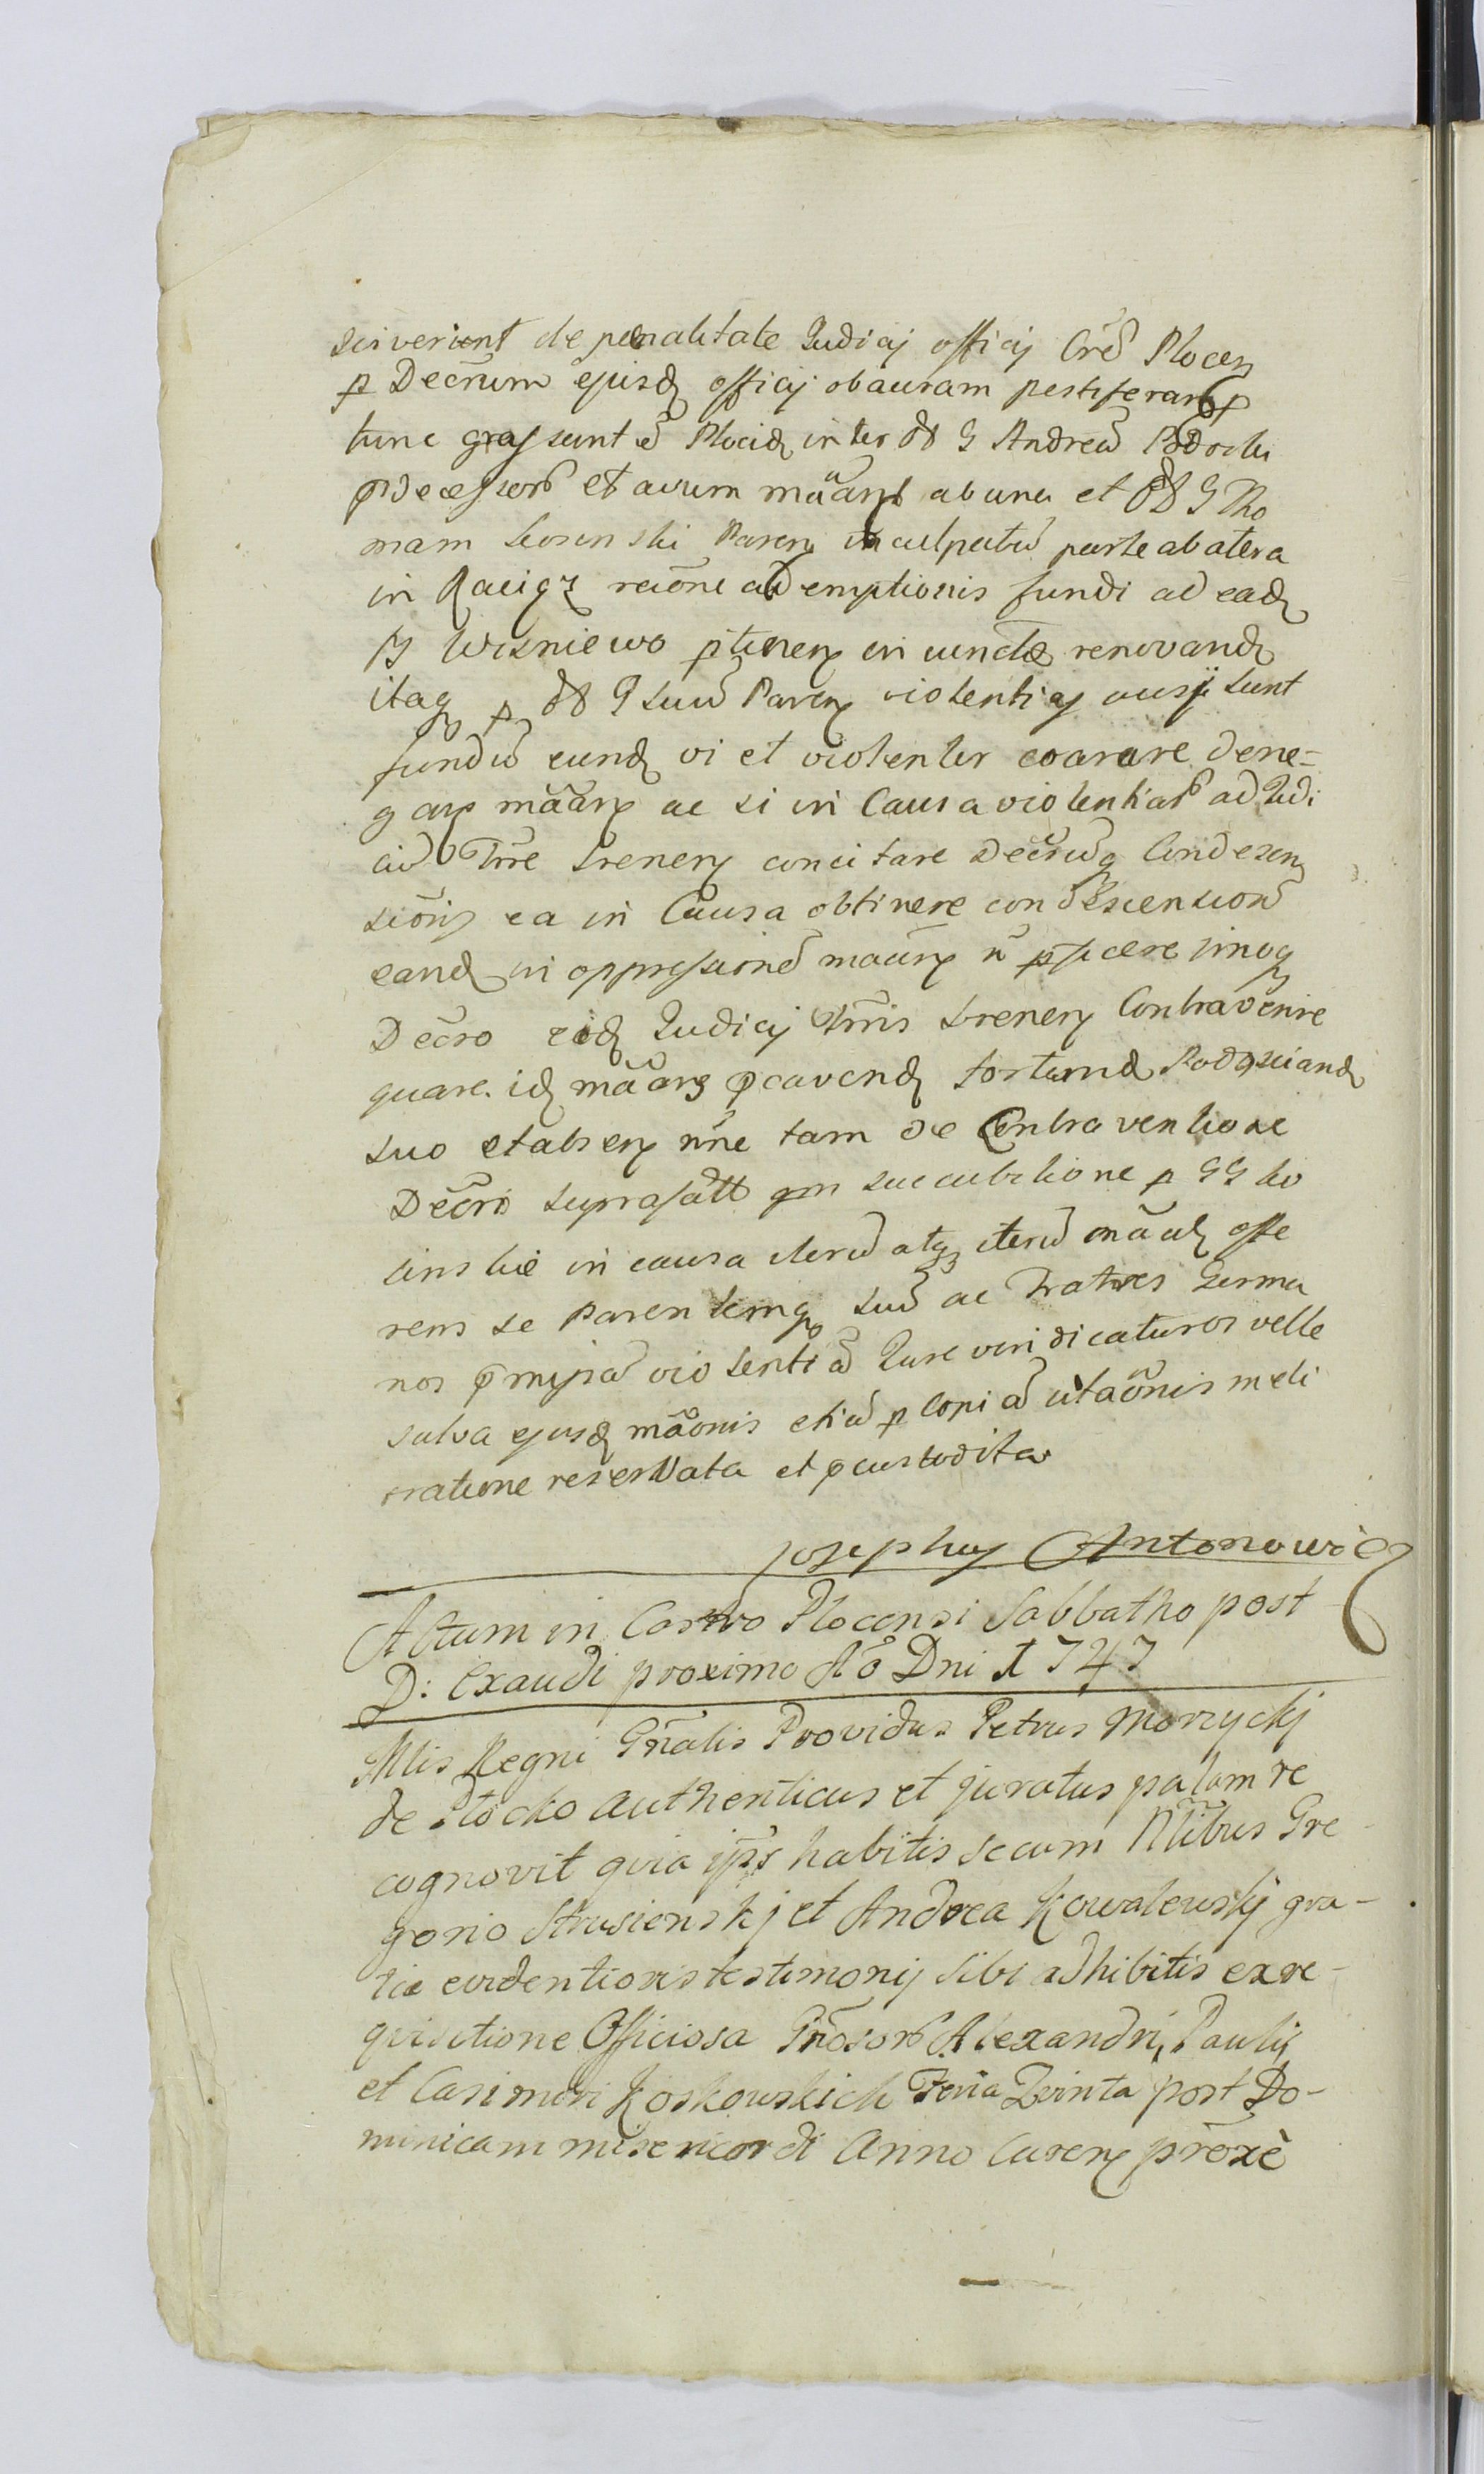 sciverient de penalitate Judicij officij Crẽ Plocen
p Decrum ejusd officij ob auram pestiferam p
tunc grassantẽ Plociæ inter ϑϑ G Andreã Podoski
prdecessorẽ et avum mãantꝭ ab una et ϑϑ G Tho
mam Kosinski Paren inculpatũ parte ab atera
in Raciąz raõne ademptionis fundi ad ead
B Wisniewo ptinen in cuncta renovand
itaq p ϑϑ G suũ Paren violentias ausi sunt
fundũ eund vi et violenter exarare dene=
gare mãare ac si in Causa violentiarũ ad Judi
ciũ Trre Srenen concitare Decrũq Condescen
sionis ea in Causa obtinere condescensionẽ
eand in oppressionẽ mãare ñ pficere imoq
Decro eid Judicij Trris Srenen Contravenire
quare id mãans pcavend fortund Podosciand
suo et absen nne tam de Contraventione
Decri suprafatt qm succubitione p GG Ko
sinskie in causa iterũ atq iterũ mãat offe
rens se Parentemq suũ ac Fratres Germa
nos prmissã violentiã Jure vindicaturos velle
salva ejusd mãonis etiã p Copiã citaõnis meli
oratione reservata et pcustodita
Josephus Antonowicz
Actum in Castro Plocensi Sabbatho post
D: Exaudi proximo Aõ Dni 1747
Mlis Regni Gnalis Providus Petrus Morzyckj
de Płocko authenticus et juratus palam re
cognovit quia ipse habitis secum Nlibus Gre
gorio Strusienskj et Andrea Kowalewskj gra-
tia evidentioris testimonij sibi adhibitis ex re-
quisitione Officiosa Gnosorũ Alexandri, Pauli
et Casimiri Koskowskich Feria Quinta post Do-
minicam misericordi Anno Curen proxè